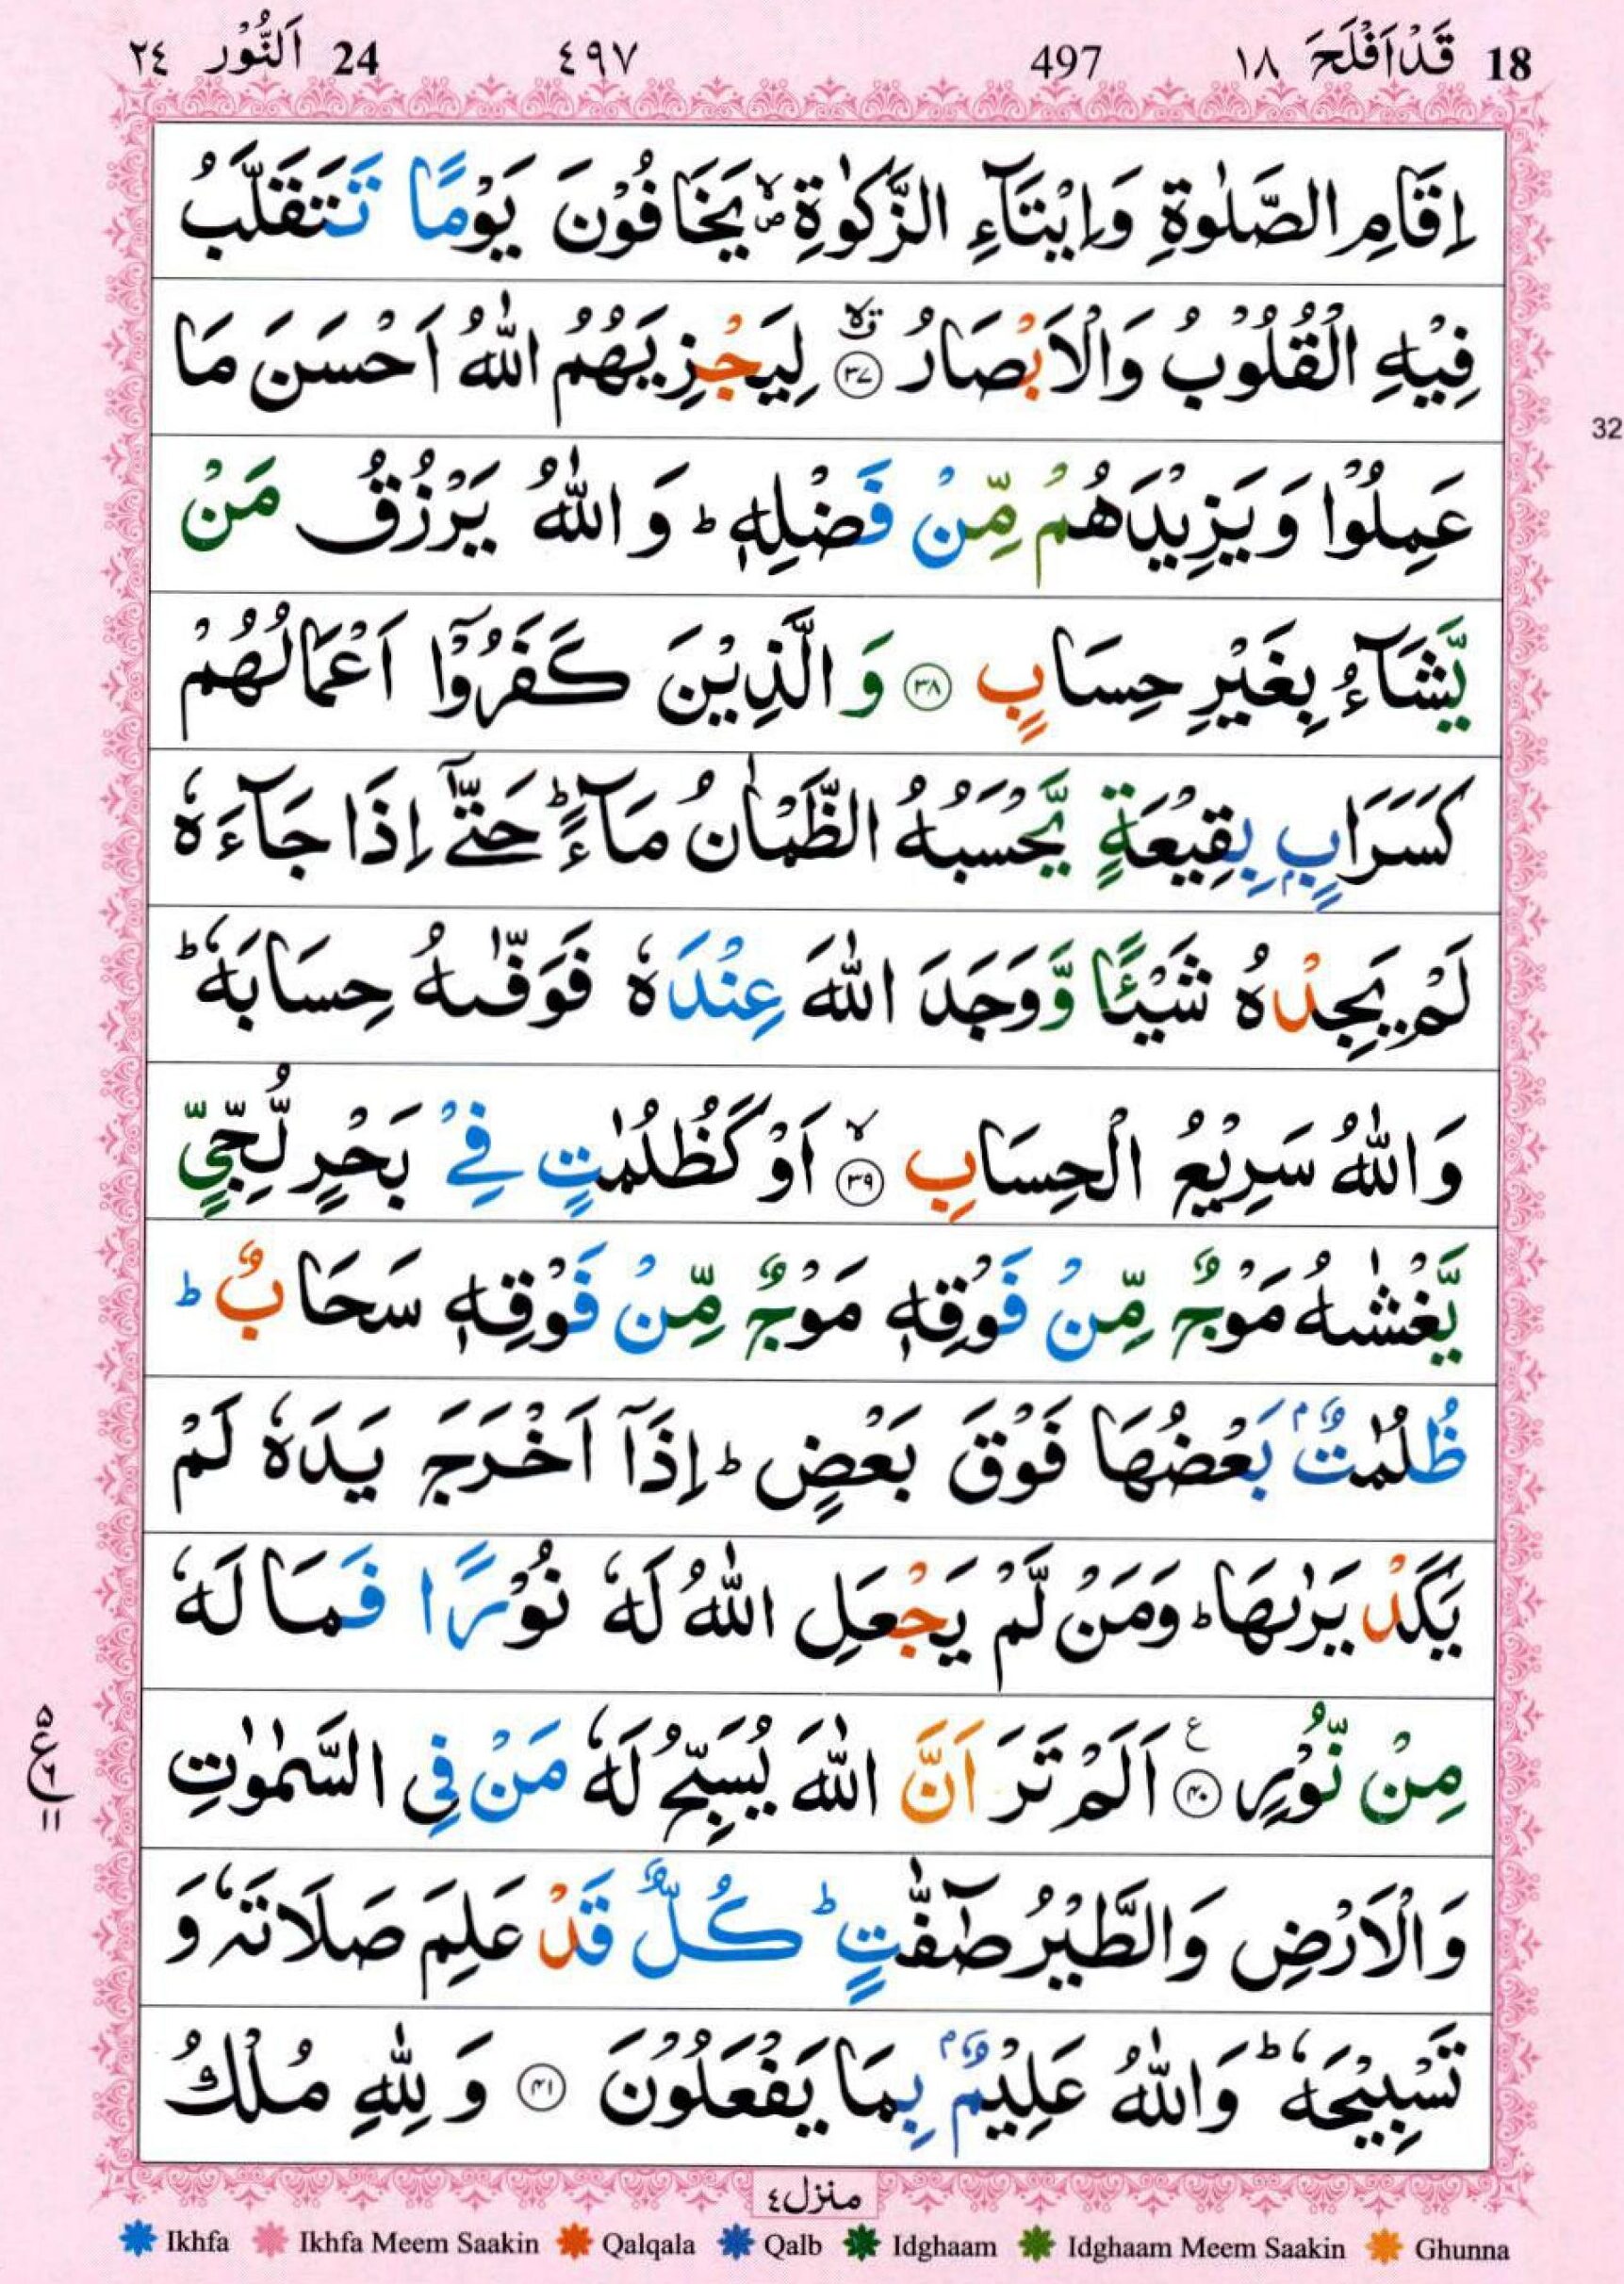 18 قَدْاَفْلَحَ ١٨ 497 ٤٩٧ 24 اَلنُّوْر ٢٤
اِقَامِ الصَّلٰوةِ وَاِيْتَآءِ الزَّكٰوةِ ۪ۙ يَخَافُوْنَ يَوْمًا تَتَقَلَّبُ
فِيْهِ الْقُلُوْبُ وَالْاَبْصَارُ ۙ۝۳۷ لِيَجْزِيَهُمُ اللّٰهُ اَحْسَنَ مَا
32
عَمِلُوْا وَيَزِيْدَهُمْ مِّنْ فَضْلِهٖ ؕ وَ اللّٰهُ يَرْزُقُ مَنْ
يَّشَآءُ بِغَيْرِ حِسَابٍ ۝۳۸ وَ الَّذِيْنَ كَفَرُوْۤا اَعْمَالُهُمْ
كَسَرَابٍۭ بِقِيْعَةٍ يَّحْسَبُهُ الظَّمْاٰنُ مَآءً ؕ حَتّٰۤى اِذَا جَآءَهٗ
لَمْ يَجِدْهُ شَيْـًٔا وَّ وَجَدَ اللّٰهَ عِنْدَهٗ فَوَفّٰىهُ حِسَابَهٗ ؕ
وَاللّٰهُ سَرِيْعُ الْحِسَابِ ۙ۝۳۹ اَوْ كَظُلُمٰتٍ فِيْ بَحْرٍ لُّجِّيٍّ
يَّغْشٰىهُ مَوْجٌ مِّنْ فَوْقِهٖ مَوْجٌ مِّنْ فَوْقِهٖ سَحَابٌ ؕ
ظُلُمٰتٌۢ بَعْضُهَا فَوْقَ بَعْضٍ ؕ اِذَاۤ اَخْرَجَ يَدَهٗ لَمْ
يَكَدْ يَرٰىهَا ؕ وَمَنْ لَّمْ يَجْعَلِ اللّٰهُ لَهٗ نُوْرًا فَمَا لَهٗ
مِنْ نُّوْرٍ ۝۴۰ ع اَلَمْ تَرَ اَنَّ اللّٰهَ يُسَبِّحُ لَهٗ مَنْ فِى السَّمٰوٰتِ
٥ ع ٦ ١١
وَالْاَرْضِ وَالطَّيْرُ صٰٓفّٰتٍ ؕ كُلٌّ قَدْ عَلِمَ صَلَاتَهٗ وَ
تَسْبِيْحَهٗ ؕ وَاللّٰهُ عَلِيْمٌۢ بِمَا يَفْعَلُوْنَ ۝۴۱ وَ لِلّٰهِ مُلْكُ
منزل٤
Ikhfa Ikhfa Meem Saakin Qalqala Qalb Idghaam Idghaam Meem Saakin Ghunna